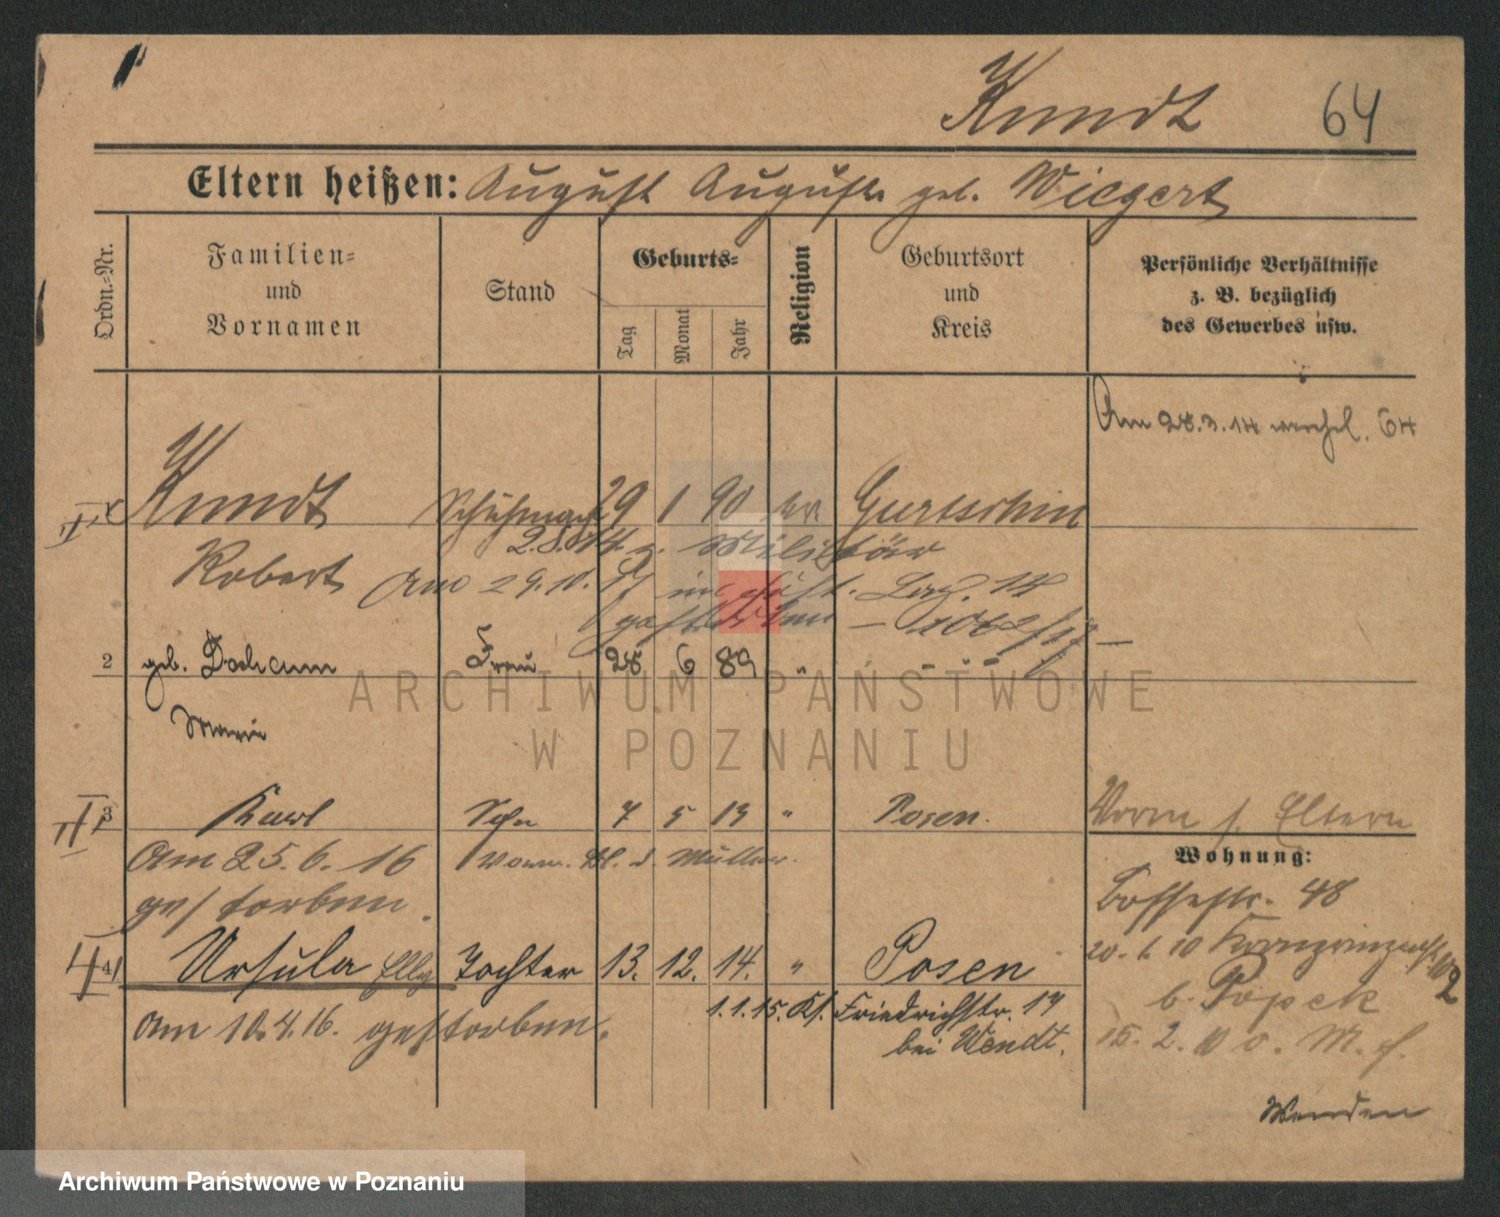 Kundt 64
Eltern heißen: August Auguste geb. Wiegert
Ordn.-Nr.
Familien-
und
Vornamen
Stand
Geburts-
Tag
Monat
Jahr
Religion
Geburtsort
und
Kreis
Persönliche Verhältnisse
z. B. bezüglich
des Gewerbes usw.
Am 28.3.14 64
Kundt Schuhmach 29 1 90 ev Gurtschin
2.8.14 z. Militär
Robert Am 29.10. 17 im Laz. 14
gestorben – 1062/17 –
2 geb. Dochann Frau 28 6 89 " – " –
Marie
ARCHIWUM PAŃSTWOWE
W POZNANIU
3 Karl Sohn 7 5 13 " Posen.
Am 25.6.16 Vorm. Bl. d. Mutter.
gestorben.
Vorm f. Eltern
Wohnung:
4 Ursula Elly Tochter 13. 12. 14. " Posen
Am 10.4.16. gestorben.
1.1.15. Friedrichstr. 17
bei Wendt.
48
20. 1. 10 Kronprinzenstr. 102
b. Popek
15. 2. 10 v. M. f.
Wenden
Archiwum Państwowe w Poznaniu